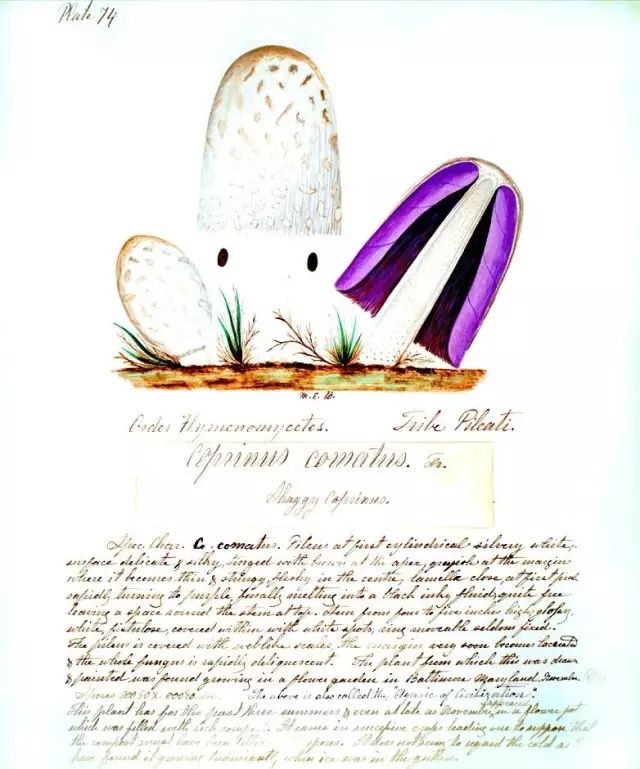 Plate 74
M. E. B.
Order Hymenomycetes. Tribe Pileati.
Coprinus comatus. Fr.
Shaggy Coprinus.
Spec. Char. C. comatus. Pileus at first cylindrical silvery white,
surface delicate & silky, tinged with brown at the apex, greyish at the margin
where it becomes thin & stringy, fleshy in the centre, lamella close, at first pink
rapidly turning to purple, finally melting into a black inky fluid, quite free
leaving a space around the stem at top. Stem from four to five inches high, glossy,
white, fistulose, covered within with white spots, ring moveable seldom fixed.
The pileus is covered with scales, the margin very soon becomes lacerated
& the whole fungus is rapidly deliquescent. The plant from which this was drawn
& painted was found growing in a flower garden in Baltimore Maryland. November
Spores .00050 x .00080 in. The above is also called the "Agaric of Civilization".
This plant has for the past three summers & even as late as November appeared in a flower pot
which was filled with rich It came in successive crops leading one to suppose that
the compost must have been spores. It does not seem to regard the cold as I
have found it growing luxuriantly when ice was in the gutters.